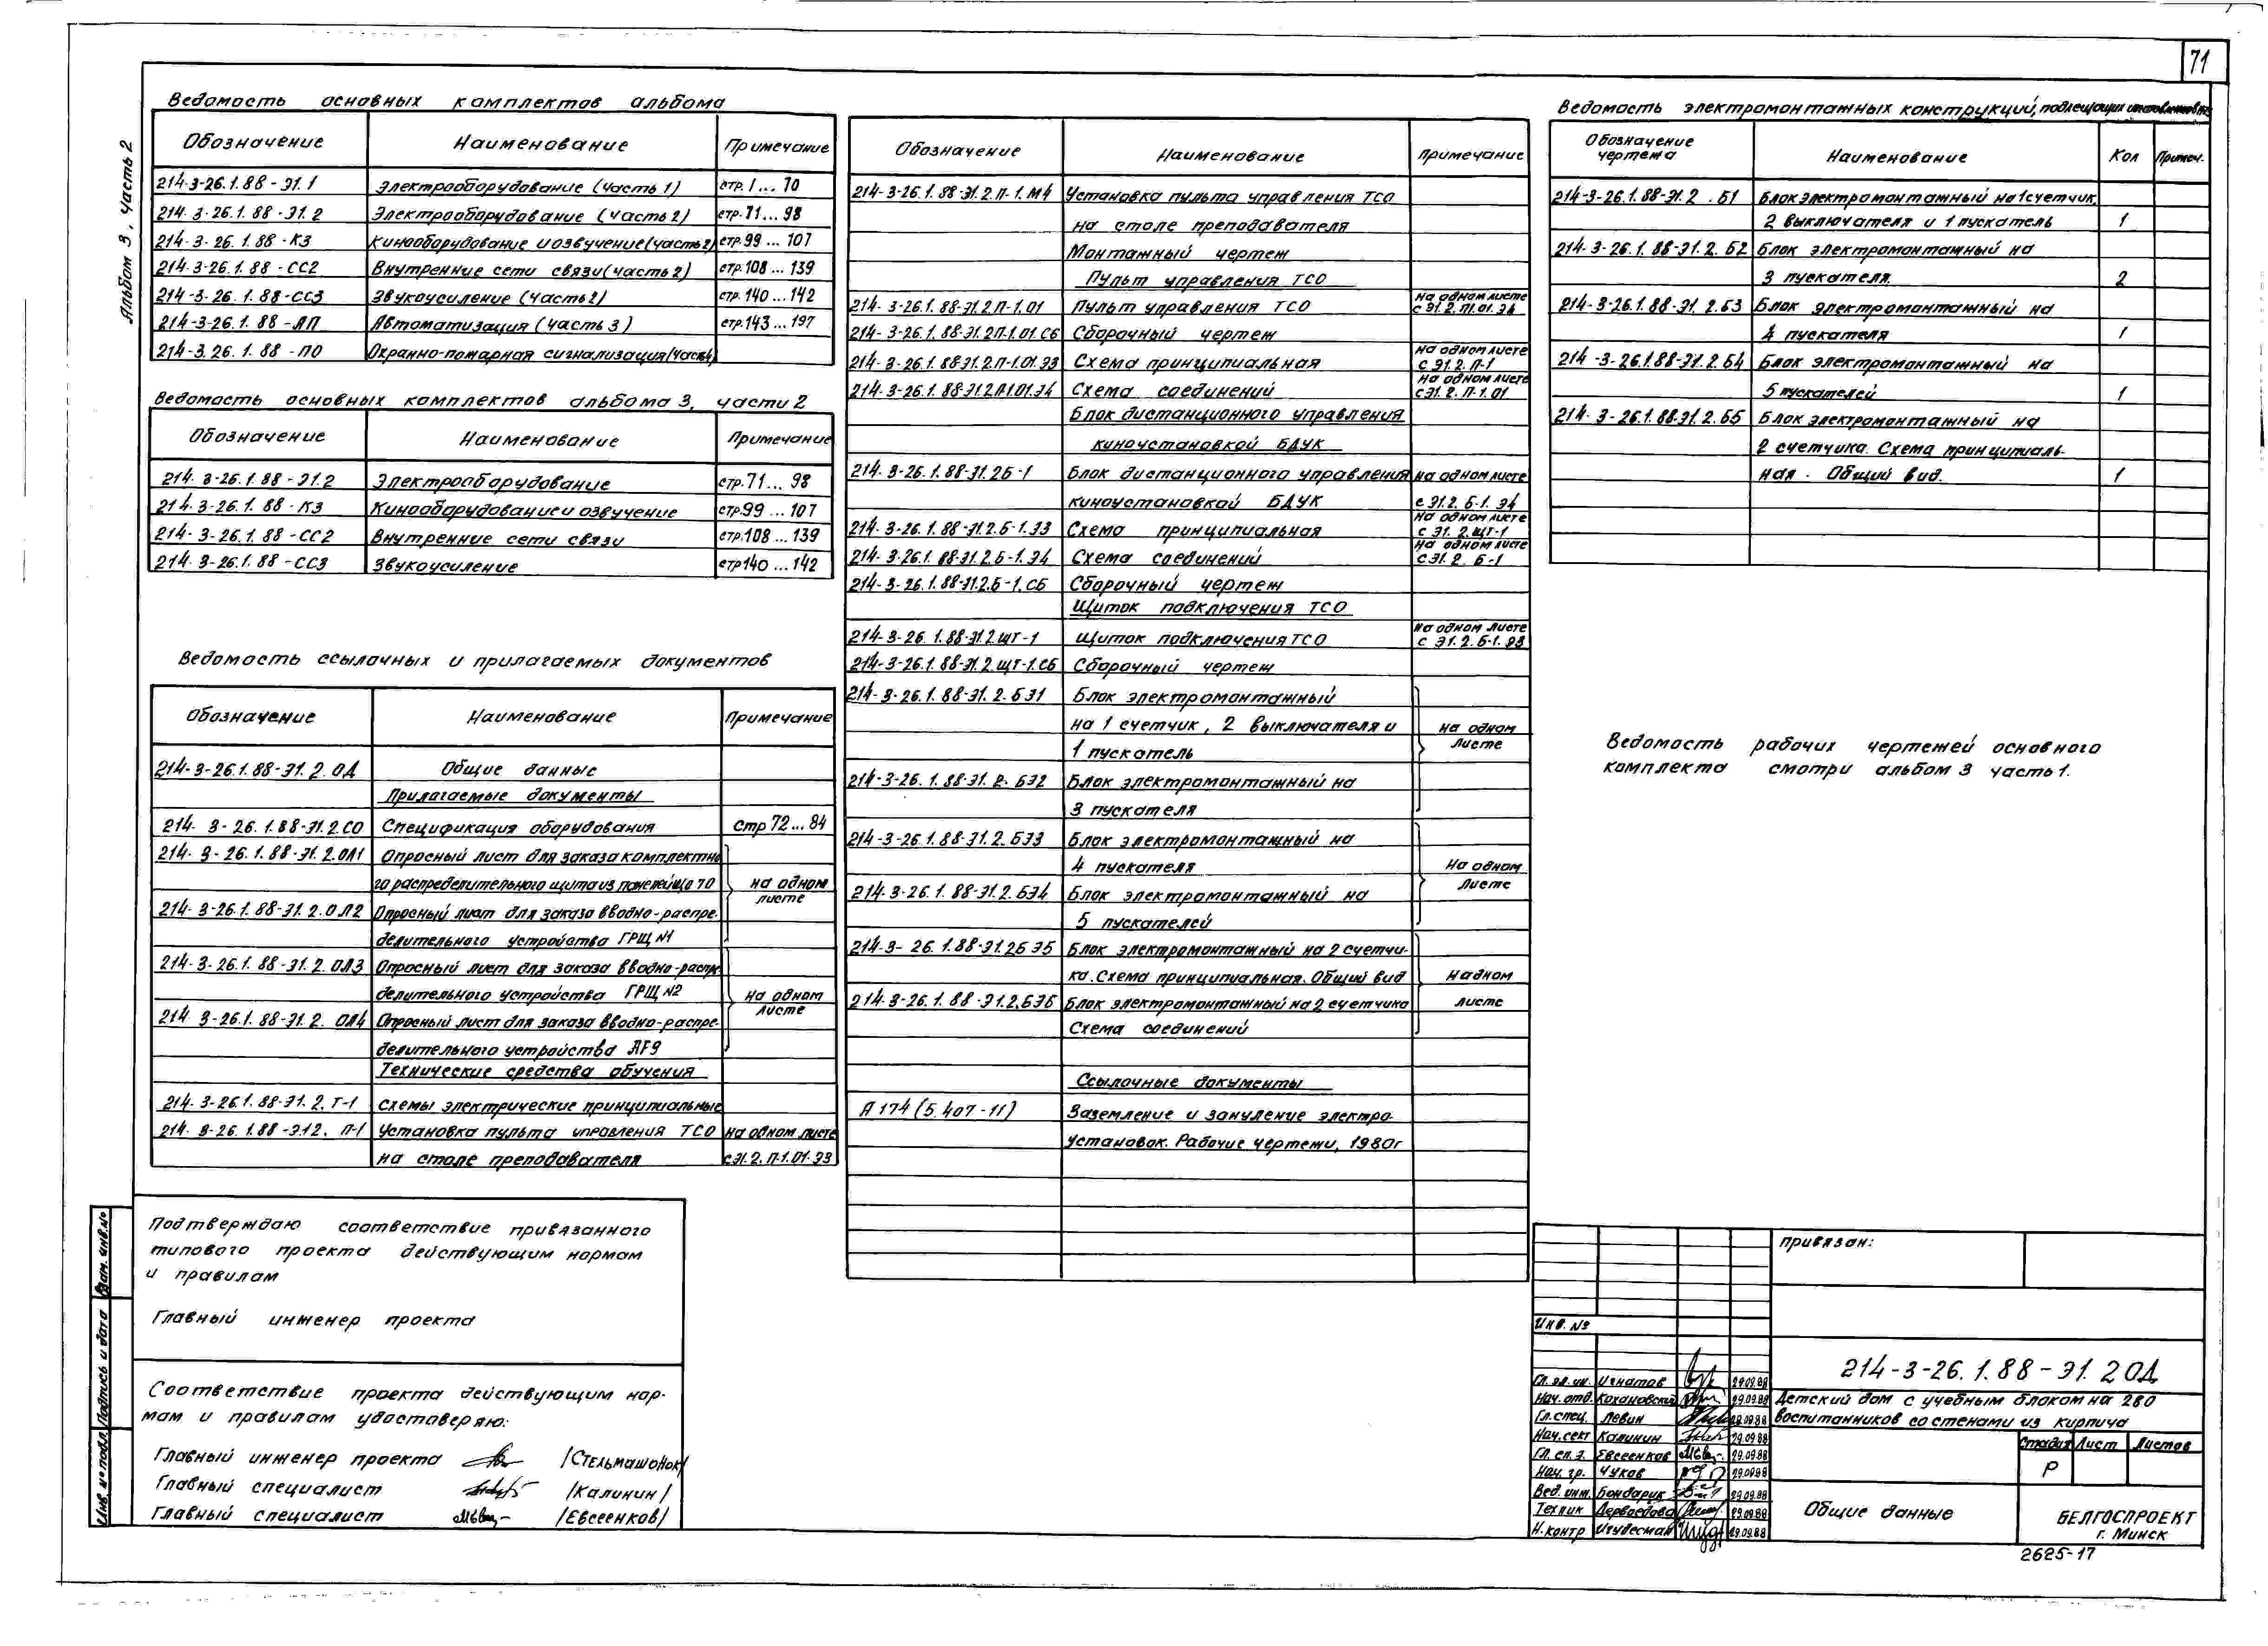 71
Альбом 3, часть 2
Ведомость основных комплектов альбома
Обозначение Наименование Примечание
214-3-26.1.88-Э1.1 Электрооборудование (часть 1) стр.1...70
214.3-26.1.88-Э1.2 Электрооборудование (часть 2) стр.71...98
214-3-26.1.88-КЗ Кинооборудование и озвучение (часть 2) стр.99...107
214-3-26.1.88-СС2 Внутренние сети связи (часть 2) стр.108...139
214-3-26.1.88-СС3 Звукоусиление (часть 2) стр.140...142
214-3-26.1.88-АП Автоматизация (часть 3) стр.143...197
214-3.26.1.88-ПО Охранно-пожарная сигнализация
Ведомость основных комплектов альбома 3, части 2
Обозначение Наименование Примечание
214.3-26.1.88-Э1.2 Электрооборудование стр.71...98
214.3-26.1.88-КЗ Кинооборудование и озвучение стр.99...107
214-3-26.1.88-СС2 Внутренние сети связи стр.108...139
214.3-26.1.88-СС3 Звукоусиление стр140...142
Ведомость ссылочных и прилагаемых документов
Обозначение Наименование Примечание
214-3-26.1.88-Э1.2.ОД Общие данные
Прилагаемые документы
214-3-26.1.88-Э1.2.СО Спецификация оборудования Стр 72...84
214-3-26.1.88-Э1.2.ОЛ1 Опросный лист для заказа комплектно
го распределительного щита из панелей ЩО 70 на одном листе
214-3-26.1.88-Э1.2.ОЛ2 Опросный лист для заказа вводно-распре-
делительного устройства ГРЩ N1
214-3-26.1.88-Э1.2.ОЛ3 Опросный лист для заказа вводно-распре-
делительного устройства ГРЩ N2 на одном листе
214 3-26.1.88-Э1.2.ОЛ4 Опросный лист для заказа вводно-распре-
делительного устройства
Технические средства обучения
214-3-26.1.88-Э1.2.Т-1 Схемы электрические принципиальные
214-3-26.1.88-Э12.П-1 Установка пульта управления ТСО на одном листе
на столе преподавателя с Э1.2.П-1.01.Э3
Обозначение Наименование Примечание
214-3-26.1.88-Э1.2.П-1.М4 Установка пульта управления ТСО
на столе преподавателя
Монтажный чертеж
Пульт управления ТСО
214-3-26.1.88-Э1.2.П-1.01 Пульт управления ТСО на одном листе с Э1.2.П1.01.Э4
214-3-26.1.88-Э1.2П-1.01 СБ Сборочный чертеж
214-3-26.1.88-Э1.2.П-1.01.Э3 Схема принципиальная на одном листе с Э1.2.П-1
214-3-26.1.88-Э1.2.П-1.01.Э4 Схема соединений на одном листе с Э1.2.П-1.01
Блок дистанционного управления
киноустановкой БДУК
214-3-26.1.88-Э1.2Б-1 Блок дистанционного управления на одном листе
киноустановкой БДУК с Э1.2.Б-1.Э4
214-3-26.1.88-Э1.2.Б-1.Э3 Схема принципиальная на одном листе с Э1.2.ЩТ-1
214-3-26.1.88-Э1.2.Б-1.Э4 Схема соединений на одном листе с Э1.2.Б-1
214-3-26.1.88-Э1.2.Б-1.СБ Сборочный чертеж
Щиток подключения ТСО
214-3-26.1.88-Э1.2ЩТ-1 Щиток подключения ТСО на одном листе с Э1.2.Б-1.Э3
214-3-26.1.88-Э1.2.ЩТ-1.СБ Сборочный чертеж
214-3-26.1.88-Э1.2.БЭ1 Блок электромонтажный
на 1 счетчик, 2 выключателя и на одном листе
1 пускатель
214-3-26.1.88-Э1.2.БЭ2 Блок электромонтажный на
3 пускателя
214-3-26.1.88-Э1.2.БЭ3 Блок электромонтажный на
4 пускателя На одном листе
214-3-26.1.88-Э1.2.БЭ4 Блок электромонтажный на
5 пускателей
214-3-26.1.88-Э1.2БЭ5 Блок электромонтажный на 2 счетчи-
ка. Схема принципиальная. Общий вид Надном
214-3-26.1.88-Э1.2.БЭ6 Блок электромонтажный на 2 счетчика листе
Схема соединений
Ссылочные документы
А174 (5.407-11) Заземление и зануление электро-
установок. Рабочие чертежи, 1980г
Ведомость электромонтажных конструкций, подлещащих
Обозначение чертежа Наименование Кол Примеч.
214-3-26.1.88-Э1.2.Б1 Блок электромонтажный на 1 счетчик,
2 выключателя и 1 пускатель 1
214-3-26.1.88-Э1.2.Б2 Блок электромонтажный на
3 пускателя. 2
214-3-26.1.88-Э1.2.Б3 Блок электромонтажный на
4 пускателя 1
214-3-26.1.88-Э1.2.Б4 Блок электромонтажный на
5 пускателей 1
214-3-26.1.88-Э1.2.Б5 Блок электромонтажный на
2 счетчика. Схема принципиаль-
ная. Общий вид. 1
Ведомость рабочих чертежей основного
комплекта смотри альбом 3 часть 1.
Подтверждаю соответствие привязанного
типового проекта действующим нормам
и правилам
Главный инженер проекта
Соответствие проекта действующим нор-
мам и правилам удостоверяю:
Главный инженер проекта /Стельмашонок/
Главный специалист /Калинин/
Главный специалист /Евсеенков/
Взам. инв.№
Подпись и дата
Инв. № подл.
Привязан:
Инв. №
214-3-26.1.88-Э1.2 ОД
Гл. эл. ин. Игнатов 29.09.88
Нач. отд. Кохановский 29.09.88
Гл. спец. Левин 29.09.88
Нач. сект Калинин 29.09.88
Гл. сп. э. Евсеенков 29.09.88
Нач. гр. Чуков 29.09.88
Вед. инж. Бондарик 29.09.88
Техник 29.09.88
Н. контр 29.09.88
Детский дом с учебным блоком на 280
воспитанников со стенами из кирпича
Стадия Лист Листов
Р
Общие данные
БЕЛГОСПРОЕКТ
г. Минск
2625-17